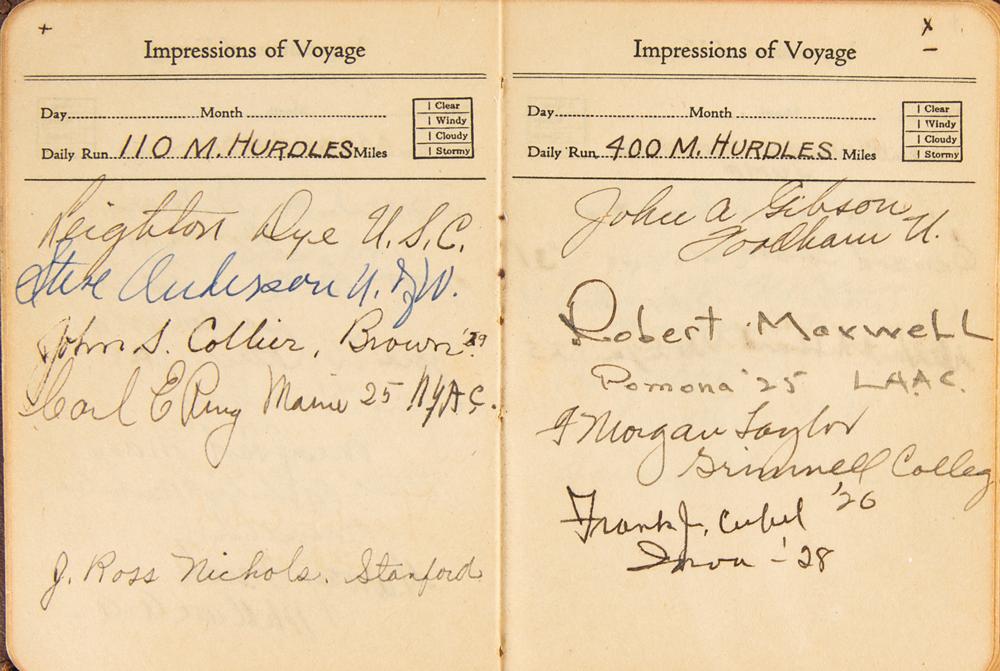 +
Impressions of Voyage
Day........................ Month ........................
| Clear
| Windy
| Cloudy
| Stormy
Daily Run 110 M. HURDLES Miles
Leighton Dye U.S.C.
Steve Anderson U. of W.
John S. Collier, Brown '29
Carl E Ring Maine 25 NYAC.
J. Ross Nichols. Stanford
X
–
Impressions of Voyage
Day........................ Month ........................
| Clear
| Windy
| Cloudy
| Stormy
Daily Run 400 M. HURDLES Miles
John A Gibson
Fordham U.
Robert Maxwell
Pomona '25 LAAC.
F Morgan Taylor
Grinnell Colleg
'26
Frank J. Cuhel
Iowa - '28